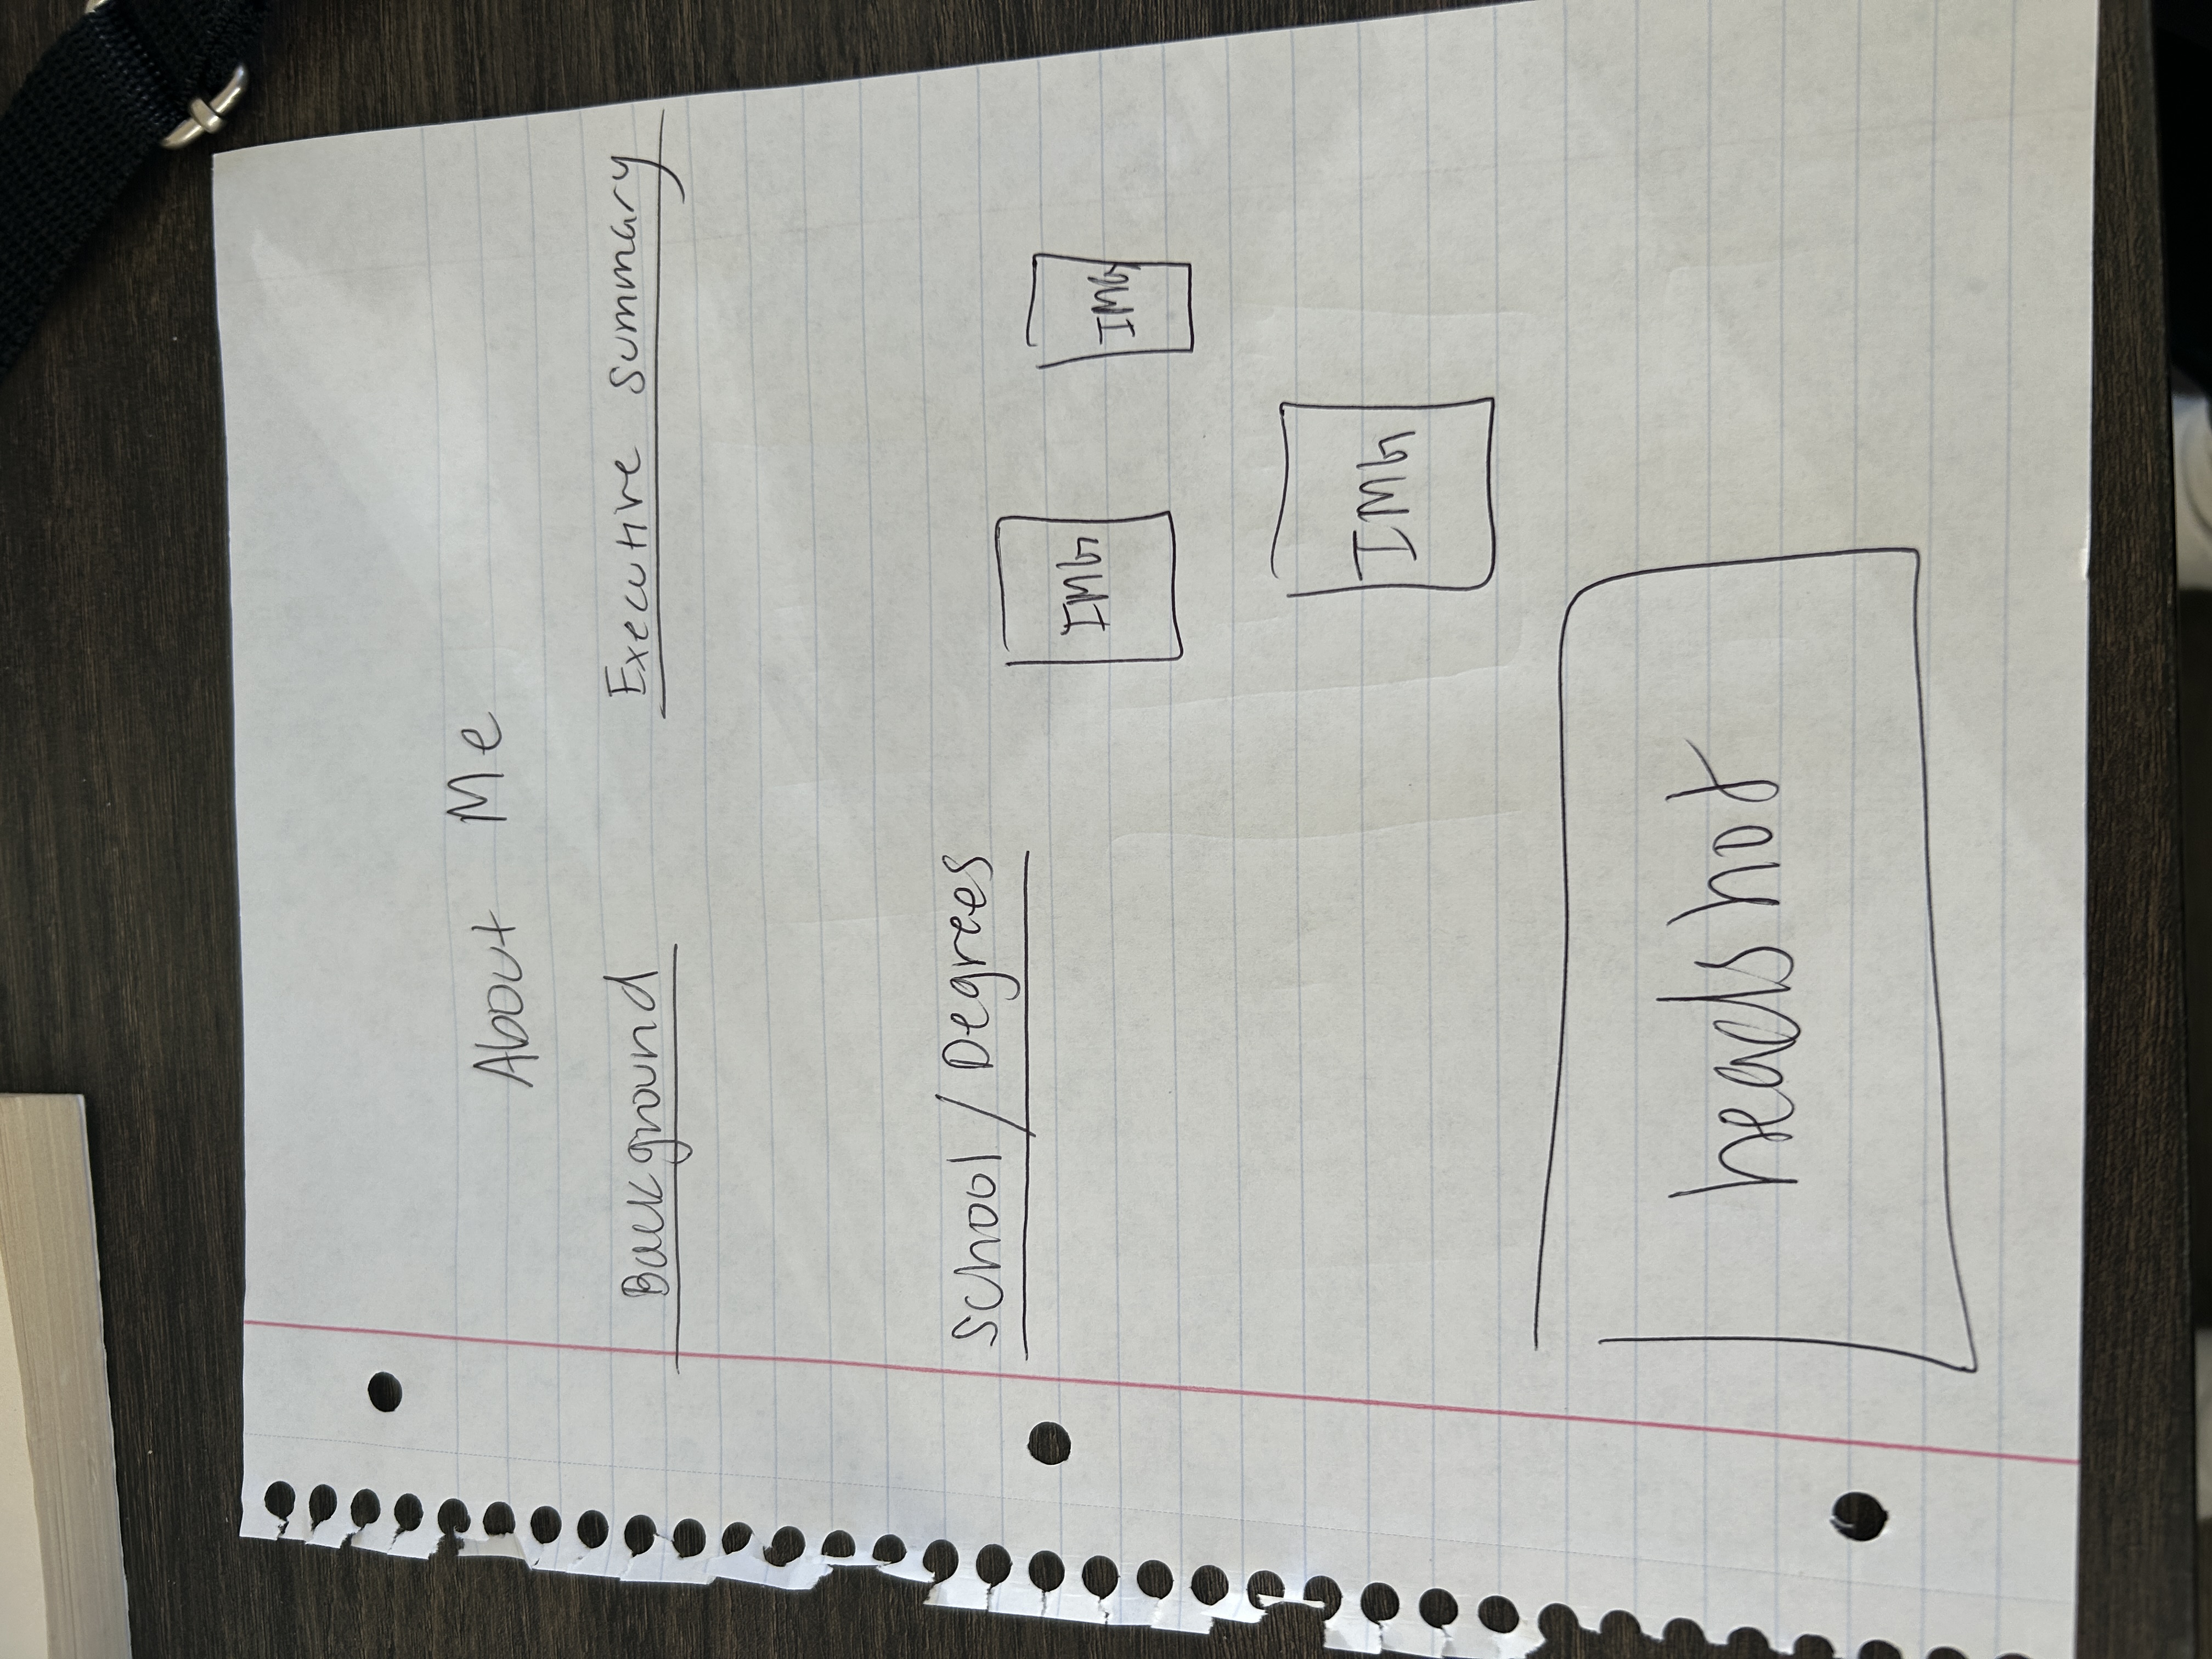 About Me
Background
Executive Summary
School / Degrees
IMG
IMG
IMG
headshot